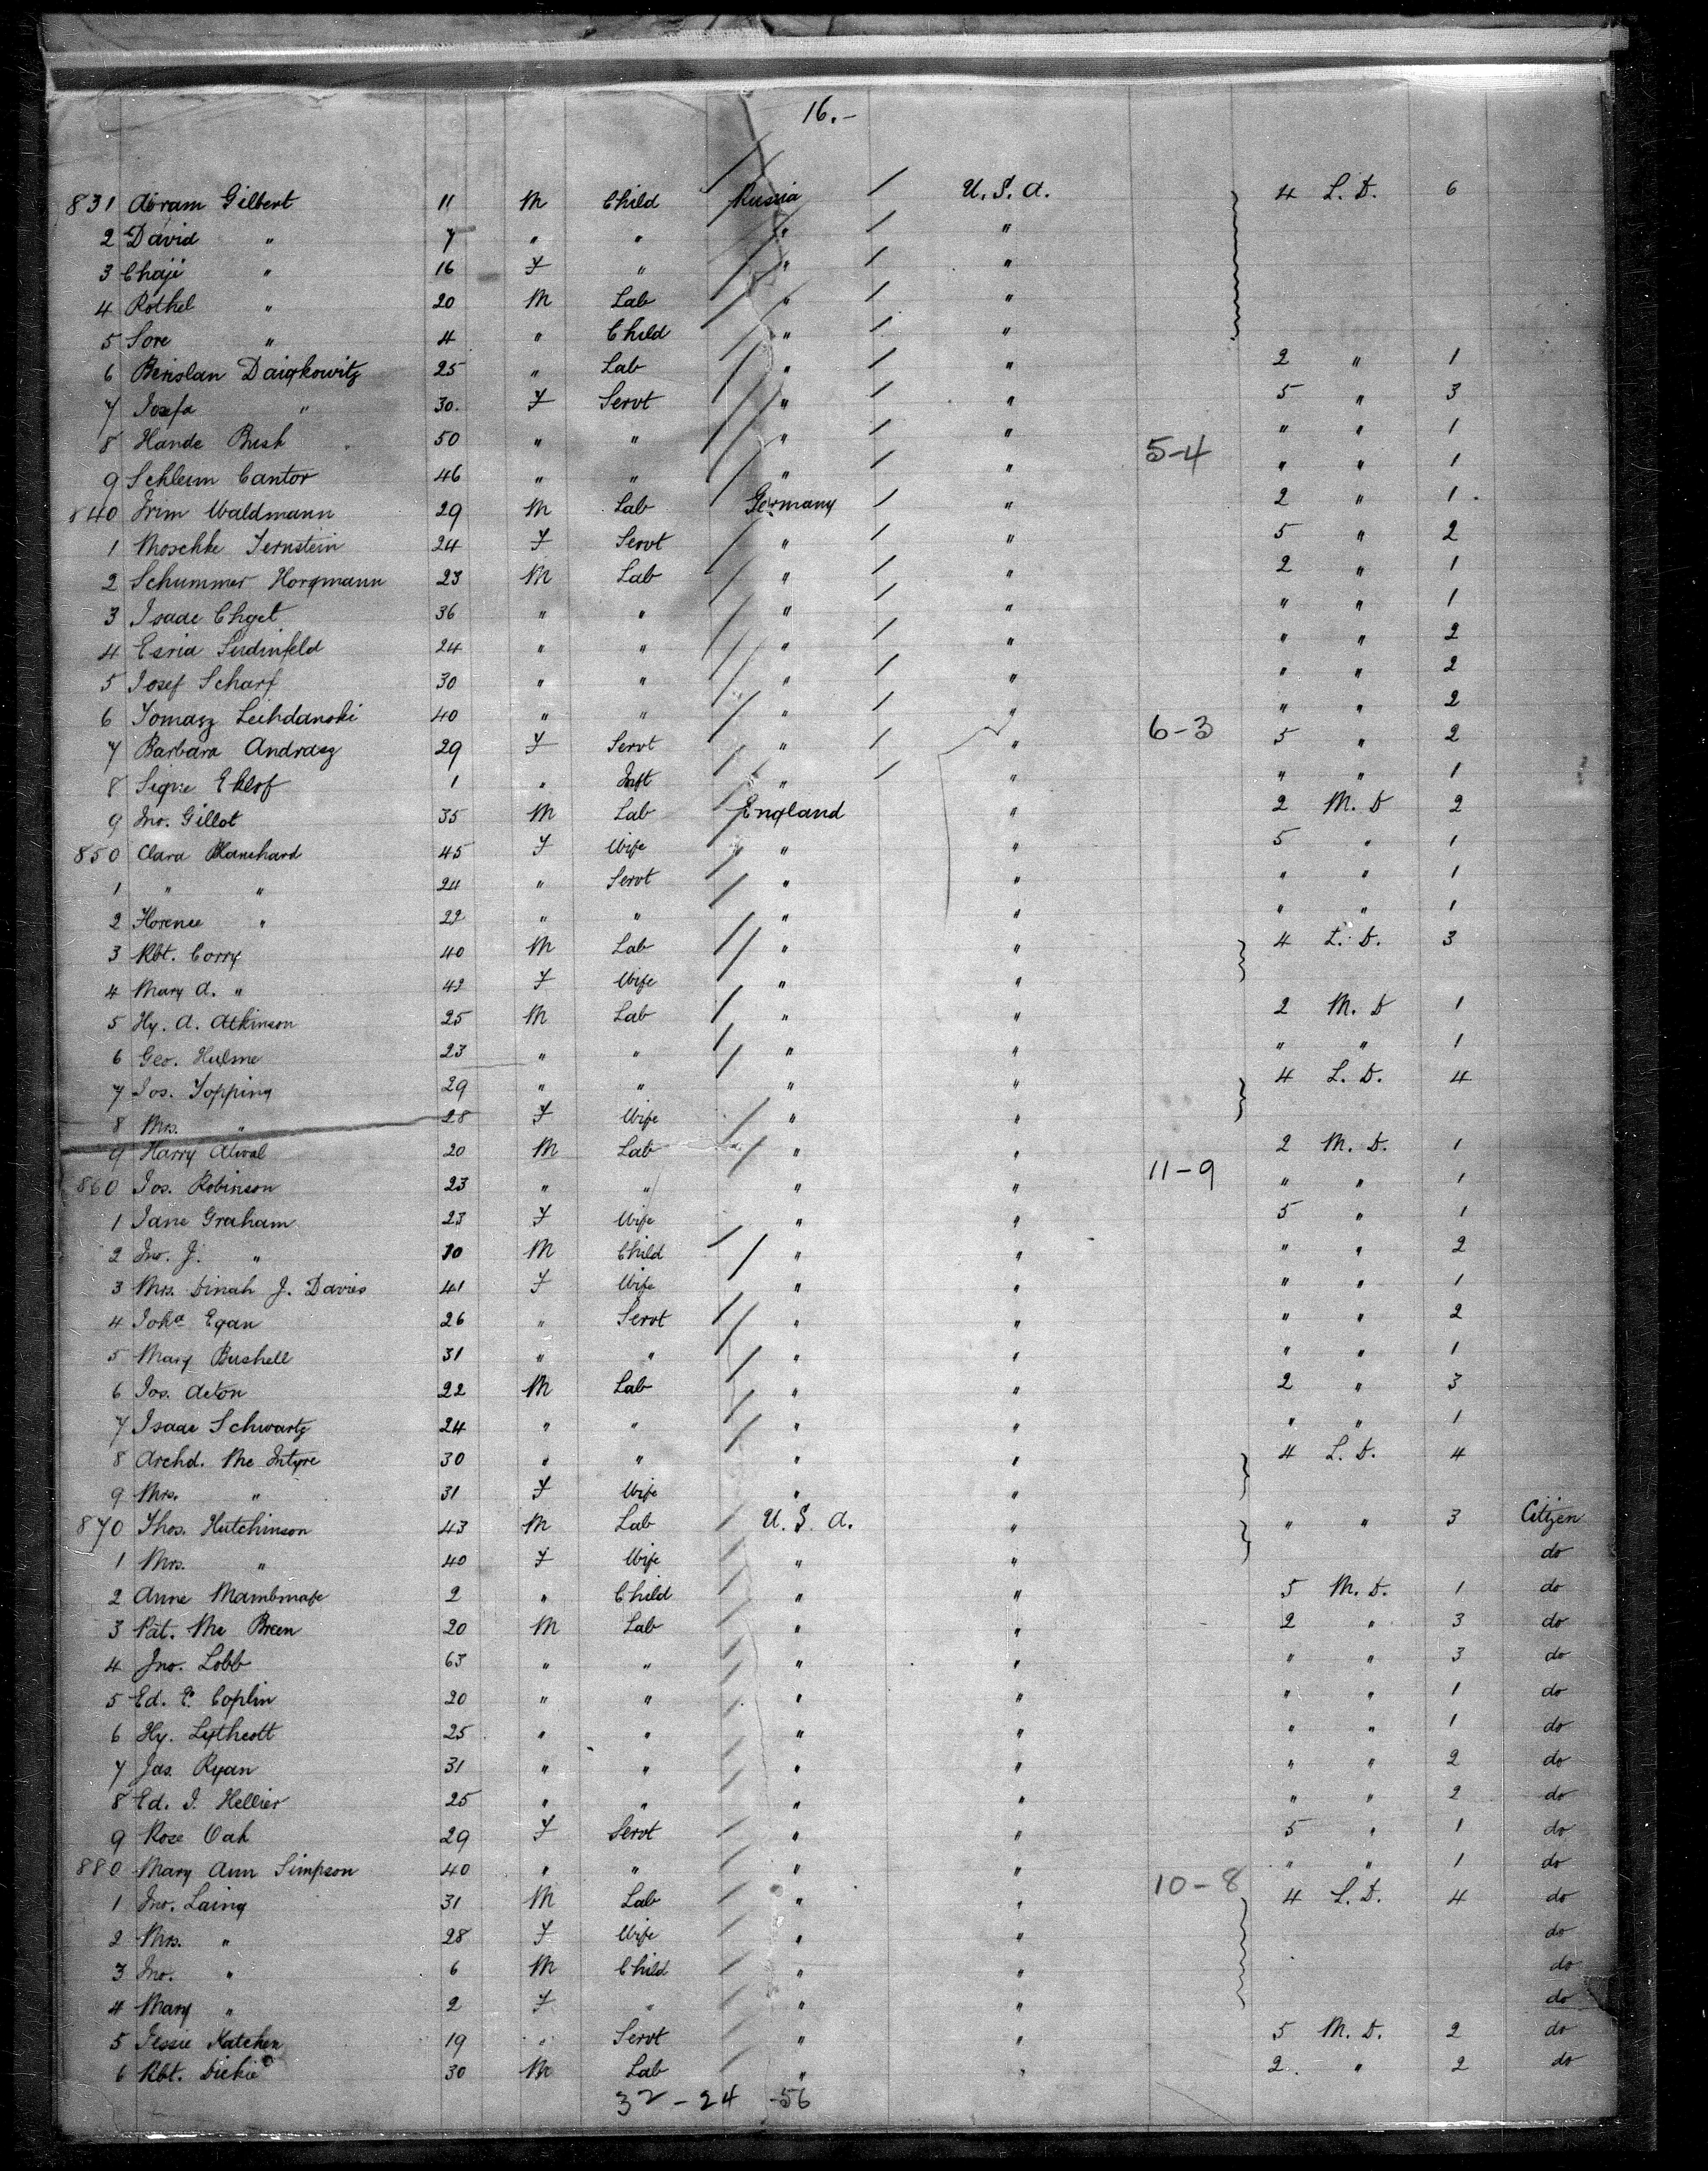 16.-
831 Abram Gilbert 11 M Child Russia U.S.A. 4 L.D. 6
2 David " 7 " " " "
3 Chaji " 16 F " " "
4 Rothel " 20 M Lab " "
5 Sore " 4 " Child " "
6 Berislan Daigkowitz 25 " Lab " " 2 " 1
7 Josefa " 30. F Servt " " 5 " 3
8 Hande Bush 50 " " " " " " 1
5-4
9 Schleim Cantor 46 " " " " " " 1
840 Frim Waldmann 29 M Lab Germany " 2 " 1
1 Moschke Jernstein 24 F Servt " " 5 " 2
2 Schummer Horgmann 23 M Lab " " 2 " 1
3 Isaac Chget 36 " " " " " " 1
4 Esria Sudinfeld 24 " " " " " " 2
5 Josef Scharf 30 " " " " " " 2
6 Tomasz Leihdanski 40 " " " " " " 2
7 Barbara Andrasz 29 F Servt " " 6-3 5 " 2
8 Signe Eklof 1 " Inft " " " " 1
9 Jno. Gillot 35 M Lab England " 2 M.D 2
850 Clara Blanchard 45 F Wife " " 5 " 1
1 " " 24 " Servt " " " " 1
2 Florence " 22 " " " " " " 1
3 Rbt. Corry 40 M Lab " " 4 L.D. 3
4 Mary A. " 42 F Wife " "
5 Hy. A. Atkinson 25 M Lab " " 2 M.D 1
6 Geo. Hulme 23 " " " " " " 1
7 Jos. Topping 29 " " " " 4 L.D. 4
8 Mrs. " 28 F Wife " "
9 Harry Atival 20 M Lab " " 2 M.D. 1
860 Jos. Robinson 23 " " " " 11-9 " " 1
1 Jane Graham 23 F Wife " " 5 " 1
2 Jno. J. " 10 M Child " " " " 2
3 Mrs. Dinah J. Davies 41 F Wife " " " " 1
4 Joha Egan 26 " Servt " " " " 2
5 Mary Bushell 31 " " " " " " 1
6 Jos. Acton 22 M Lab " " 2 " 3
7 Isaac Schwartz 24 " " " " " " 1
8 Archd. Mc Intyre 30 " " " " 4 L.D. 4
9 Mrs. " 31 F Wife " "
870 Thos. Hutchinson 43 M Lab U.S.A. " " " 3 Citizen
1 Mrs. " 40 F Wife " " do
2 Anne 2 " Child " " 5 M.D. 1 do
3 Pat. Mc Breen 20 M Lab " " 2 " 3 do
4 Jno. Lobb 63 " " " " " " 3 do
5 Ed. E. Coplin 20 " " " " " " 1 do
6 Hy. Lythcott 25 " " " " " " 1 do
7 Jas. Ryan 31 " " " " " " 2 do
8 Ed. J. Hellier 25 " " " " " " 2 do
9 Rose Oak 29 F Servt " " 5 " 1 do
880 Mary Ann Simpson 40 " " " " " " 1 do
1 Jno. Laing 31 M Lab " " 10-8 4 L.D. 4 do
2 Mrs. " 28 F Wife " " do
3 Jno. " 6 M Child " " do
4 Mary " 2 F " " " do
5 Jessie Katchen 19 " Servt " " 5 M.D. 2 do
6 Rbt. Dickie 30 M Lab " " 2 " 2 do
32-24 56